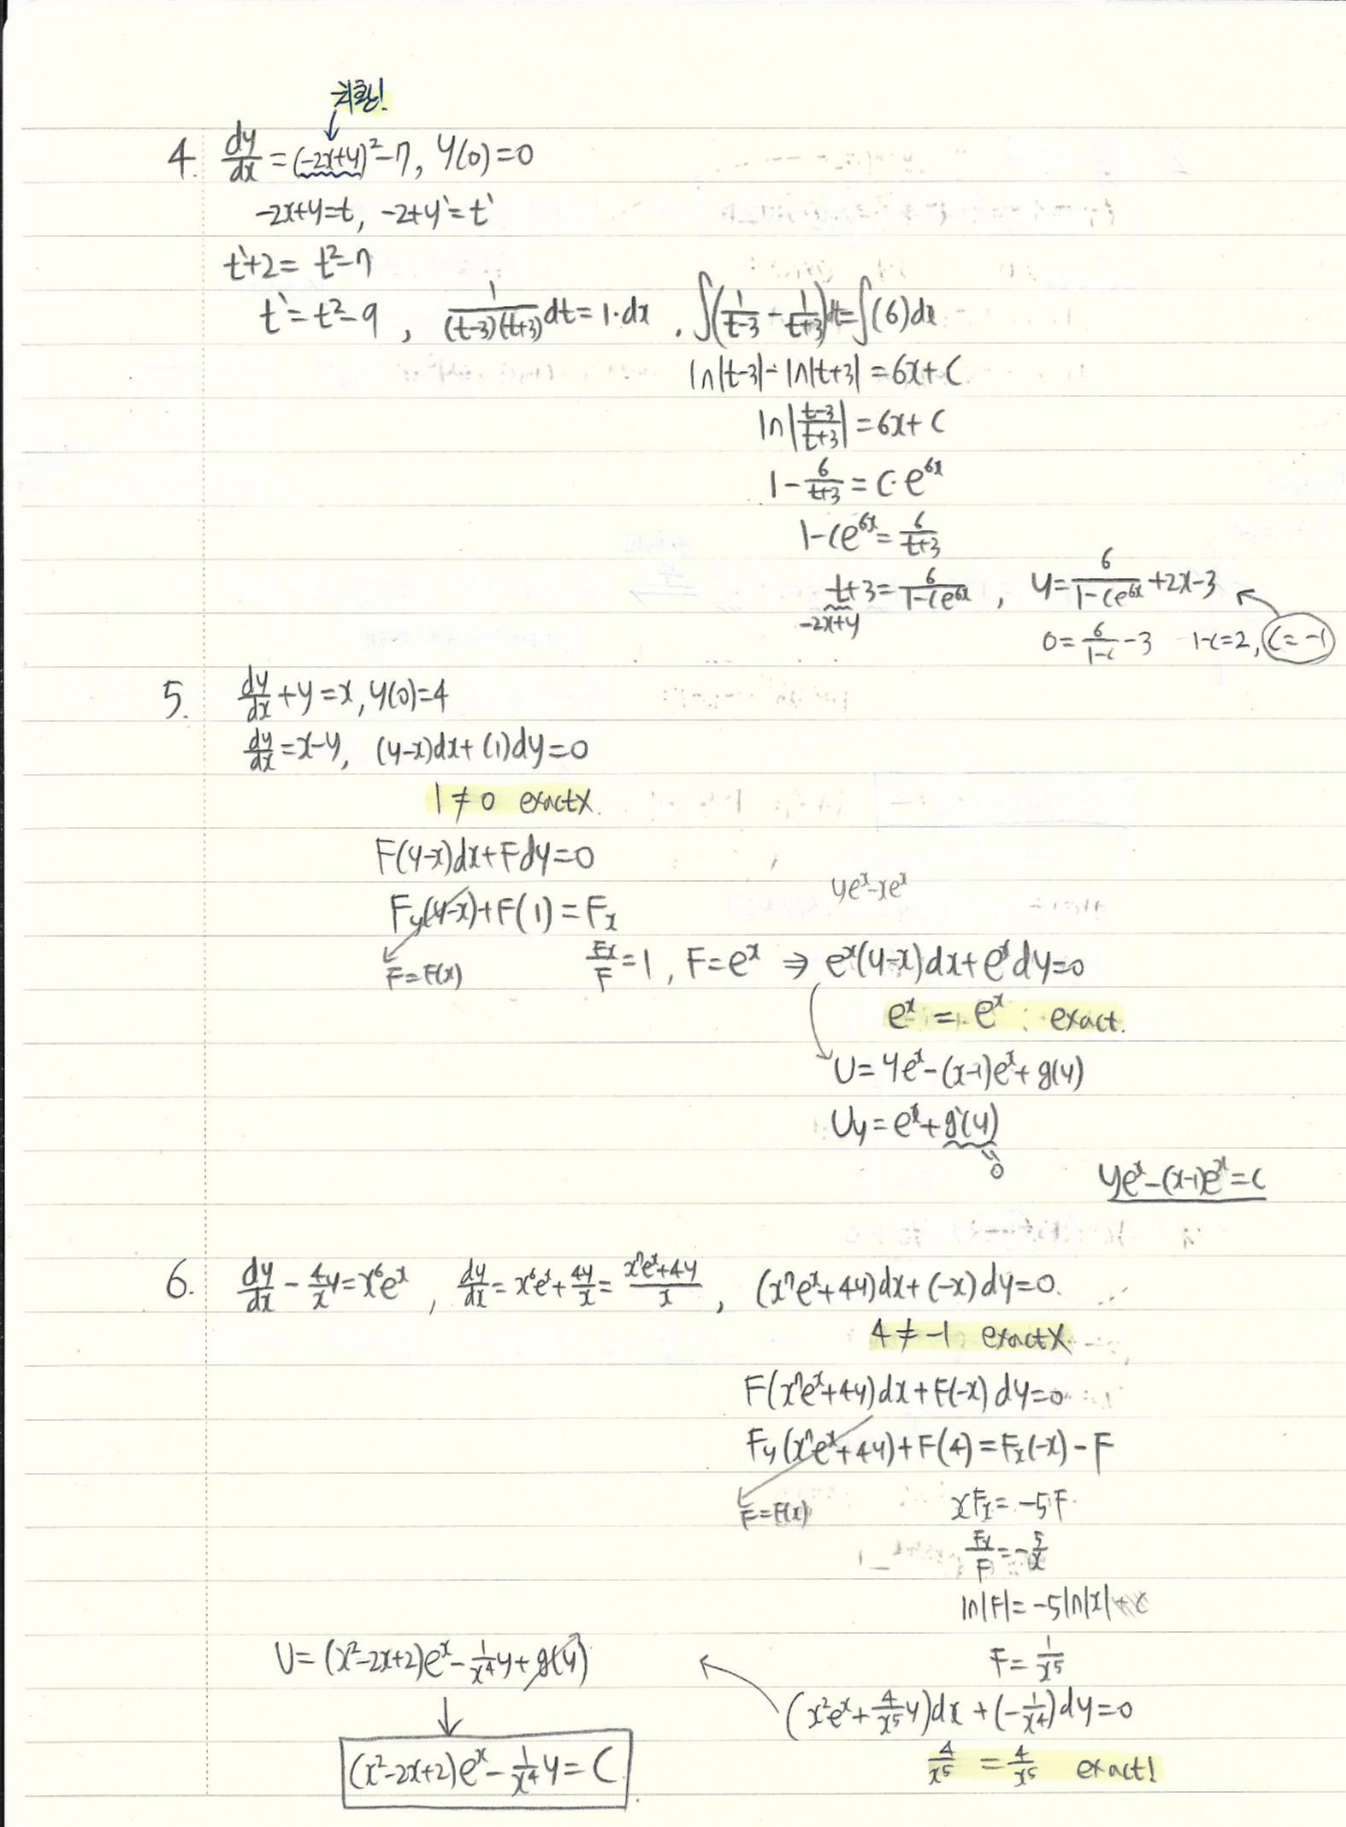 치환!
4. dy/dx = (-2x+y)²-7, y(0)=0
-2x+y=t, -2+y'=t'
t'+2 = t²-7
t' = t²-9 , 1/((t-3)(t+3)) dt = 1·dx , ∫(1/(t-3) - 1/(t+3))dt = ∫(6)dx
ln|t-3| - ln|t+3| = 6x+C
ln|(t-3)/(t+3)| = 6x+C
1 - 6/(t+3) = C·e^(6x)
1-Ce^(6x) = 6/(t+3)
t+3 = 6/(1-Ce^(6x)) , y = 6/(1-Ce^(6x)) +2x-3
-2x+y
0 = 6/(1-C) -3 1-C=2, C=-1
5. dy/dx +y=x, y(0)=4
dy/dx = x-y, (y-x)dx+(1)dy=0
1≠0 exactX.
F(y-x)dx+Fdy=0
yeˣ-xeˣ
F_y(y-x)+F(1)=F_x
F=F(x)
F_x/F = 1, F=eˣ ⇒ eˣ(y-x)dx+eˣdy=0
eˣ = eˣ : exact.
U= yeˣ-(x-1)eˣ+g(y)
U_y = eˣ+g'(y)
0
yeˣ-(x-1)eˣ=C
6. dy/dx - 4/x y = x⁶eˣ , dy/dx = x⁶eˣ + 4y/x = (x⁷eˣ+4y)/x , (x⁷eˣ+4y)dx+(-x)dy=0.
4≠-1 exactX
F(x⁷eˣ+4y)dx+F(-x)dy=0
F_y(x⁷eˣ+4y)+F(4)=F_x(-x)-F
F=F(x)
xF_x = -5F
F_x/F = -5/x
ln|F|= -5ln|x|+C
F = 1/x⁵
(x²eˣ + 4/x⁵ y)dx + (-1/x⁴)dy=0
4/x⁵ = 4/x⁵ exact!
U= (x²-2x+2)eˣ - 1/x⁴ y + g(y)
(x²-2x+2)eˣ - 1/x⁴ y = C